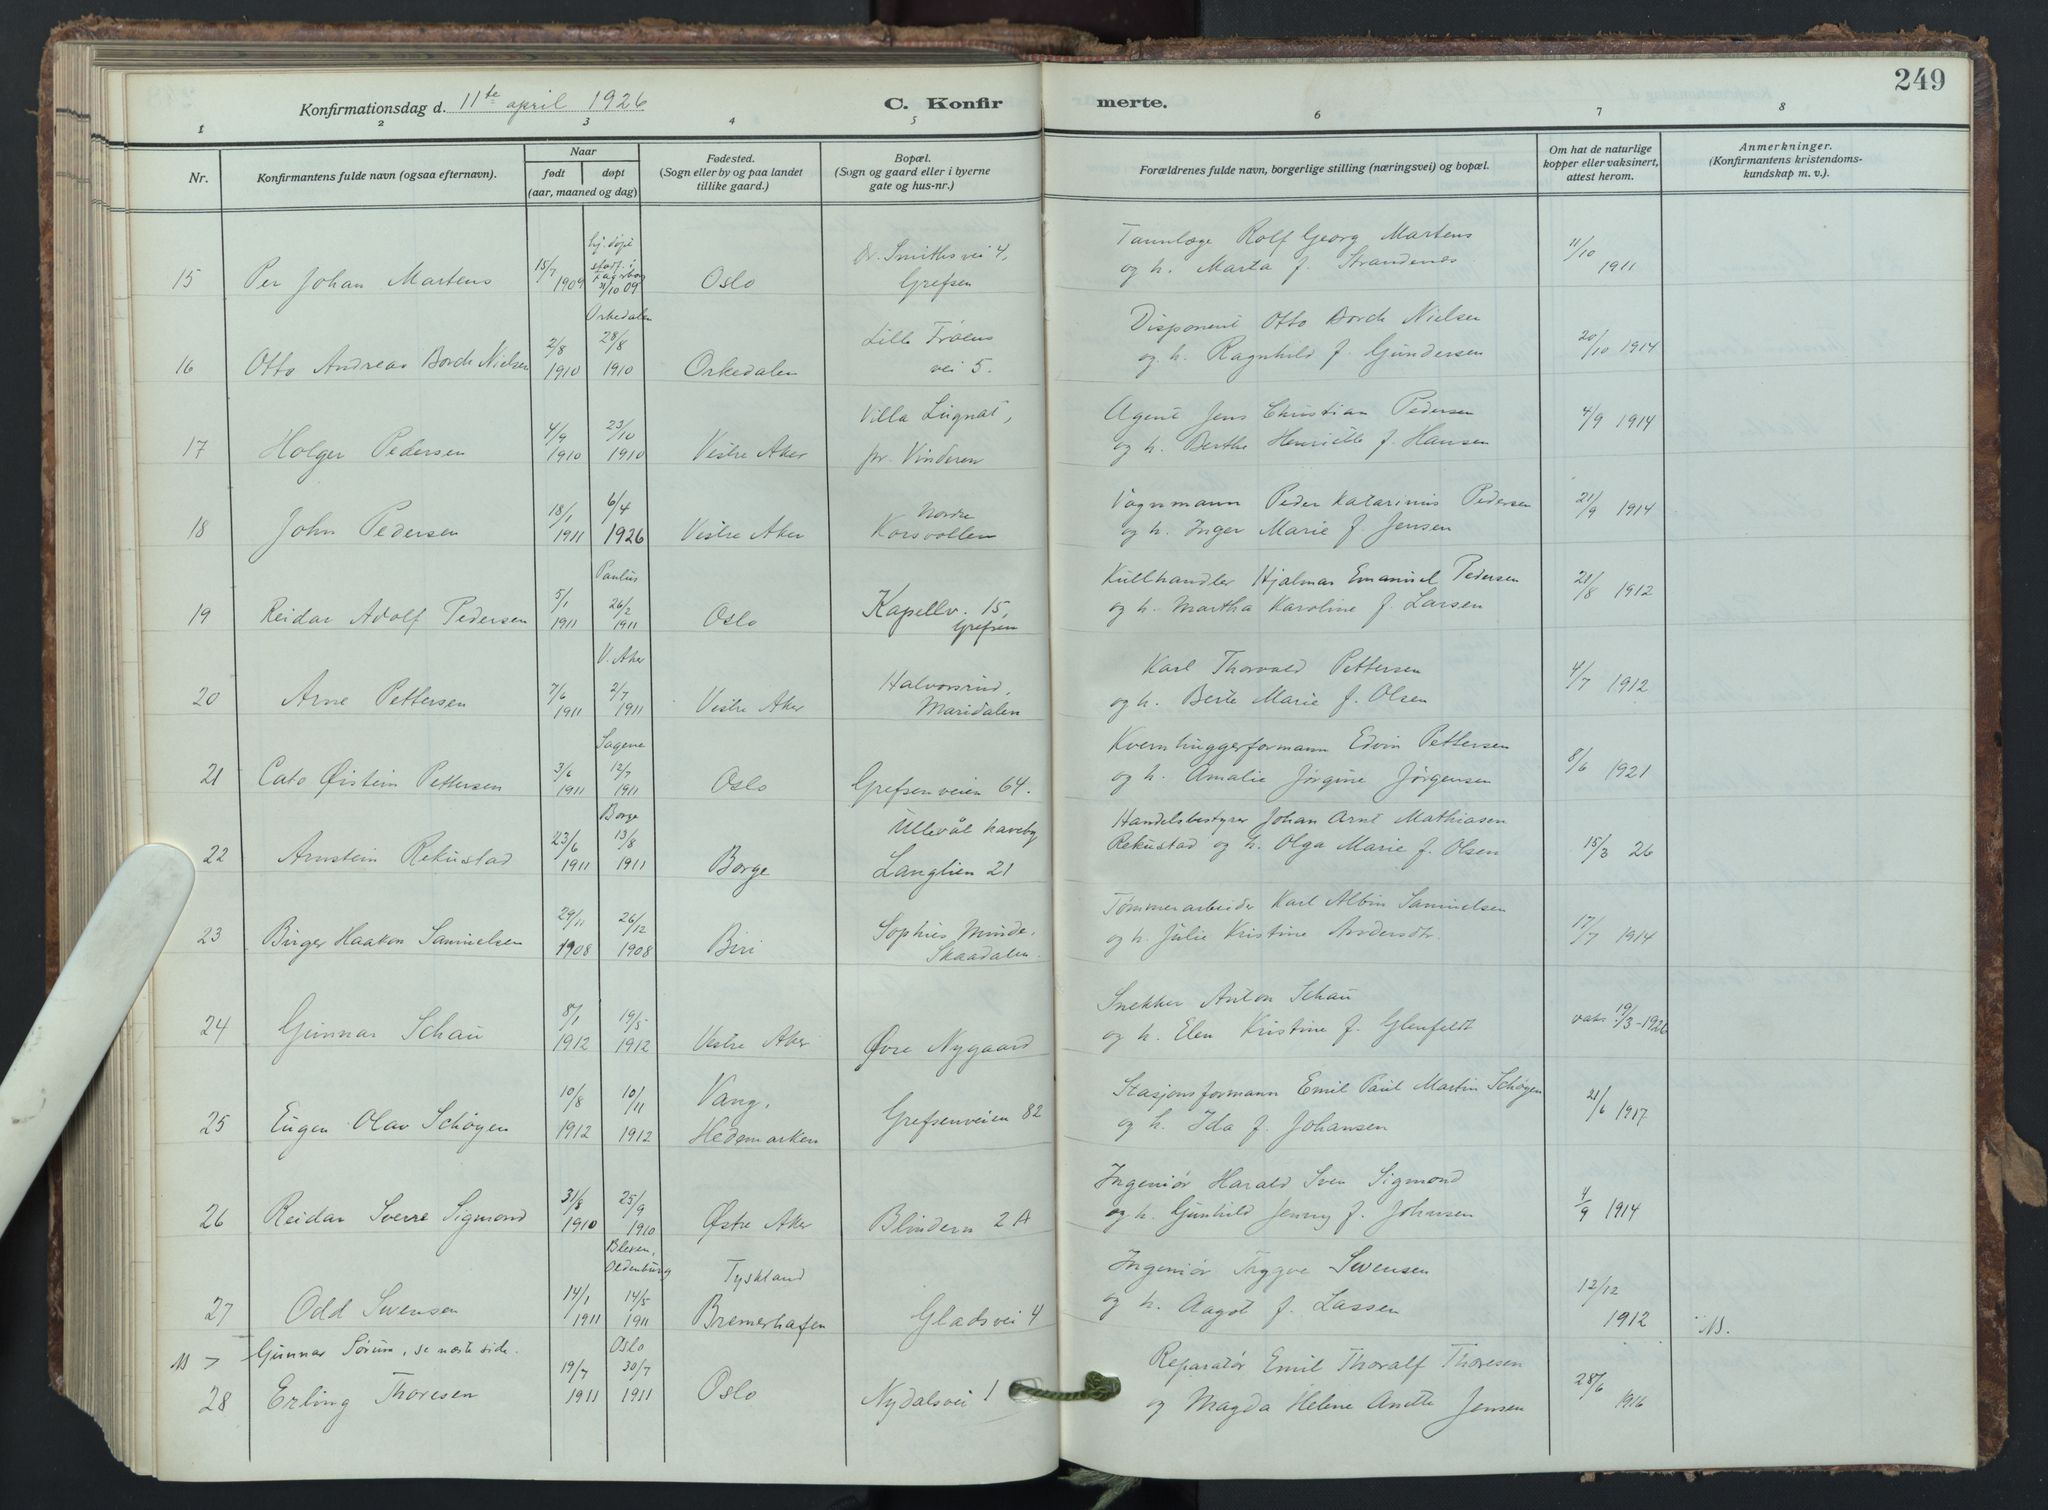 249
Konfirmationsdag d. 11te april 1926
C. Konfir
merte.
1
2
3
4
5
6
7
8
Nr.
Konfirmantens fulde navn (ogsaa efternavn).
Naar
født
døpt
(aar, maaned og dag)
Fødested.
(Sogn eller by og paa landet
tillike gaard.)
Bopæl.
(Sogn og gaard eller i byerne
gate og hus-nr.)
Forældrenes fulde navn, borgerlige stilling (næringsvei) og bopæl.
Om hat de naturlige
kopper eller vaksinert,
attest herom.
Anmerkninger.
(Konfirmantens kristendoms-
kundskap m. v.).
15 Per Johan Martens 15/7 1909 hj. døpt stadf. i Fagerborg 31/10 09 Oslo Dr. Smiths vei 4, Grefsen
Tannlæge Rolf Georg Martens
og h. Marta f. Strandenes
11/10 1911
16 Otto Andreas Borch Nielsen 2/8 1910 Orkedalen 28/8 1910 Orkedalen Lille Frøens vei 5.
Disponent Otto Borch Nielsen
og h. Ragnhild f. Gundersen
20/10 1914
17 Holger Pedersen 4/9 1910 23/10 1910 Vestre Aker Villa Lugnat, pr. Vinderen
Agent Jens Christian Pedersen
og h. Berthe Henriette f. Hansen
4/9 1914
18 John Pedersen 18/1 1911 6/4 1926 Vestre Aker Nordre Korsvollen
Vognmann Peder Katarinus Pedersen
og h. Inger Marie f. Jensen
21/9 1914
19 Reidar Adolf Pedersen 5/1 1911 Paulus 26/2 1911 Oslo Kapellv. 15, Grefsen
Kullhandler Hjalmar Emanuel Pedersen
og h. Martha Karoline f. Larsen
28/8 1912
20 Arne Pettersen 7/6 1911 V. Aker 2/7 1911 Vestre Aker Halvorsrud, Maridalen
Karl Thorvald Pettersen
og h. Berte Marie f. Olsen
4/7 1912
21 Cato Øistein Pettersen 3/6 1911 Sagene 12/7 1911 Oslo Grefsenveien 64.
Kvernhuggerformann Edvin Pettersen
og h. Amalie Jørgine Jørgensen
8/6 1921
22 Arnstein Rekustad 23/6 1911 Borge 13/8 1911 Borge Ullevål haveby Langlien 21
Handelsbestyrer Johan Arnt Mathiasen
Rekustad og h. Olga Marie f. Olsen
15/3 26
23 Birger Haakon Samuelsen 29/11 1908 26/12 1908 Biri Sophies Minde, Skaadalen.
Tømmerarbeider Karl Albin Samuelsen
og h. Julie Kristine Andersdtr.
17/7 1914
24 Gunnar Schau 8/1 1912 19/5 1912 Vestre Aker Øvre Nygaard
Snekker Anton Schau
og h. Elen Kristine f. Glenfeldt
vaks. 19/3-1926
25 Eugen Olav Schøyen 10/8 1912 10/11 1912 Vang, Hedemarken Grefsenveien 82
Stasjonsformann Emil Paul Martin Schøyen
og h. Ida f. Johansen
21/6 1917
26 Reidar Sverre Sigmond 31/8 1910 25/9 1910 Østre Aker Blindern 2 A
Ingeniør Harald Sven Sigmond
og h. Gunhild Jenny f. Johnsen
4/9 1914
27 Odd Svensen 14/1 1911 Blexen, Oldenburg 14/5 1911 Tyskland Bremerhafen Gladsvei 4
Ingeniør Trygve Svensen
og h. Aagot f. Lassen
12/12 1912
NB.
NB > Gunnar Sørum, se næste side.
28 Erling Thoresen 19/7 1911 Oslo 30/7 1911 Oslo Nydalsvei 1
Reparatør Emil Thoralf Thoresen
og Magda Helene Andte Jensen
28/6 1916